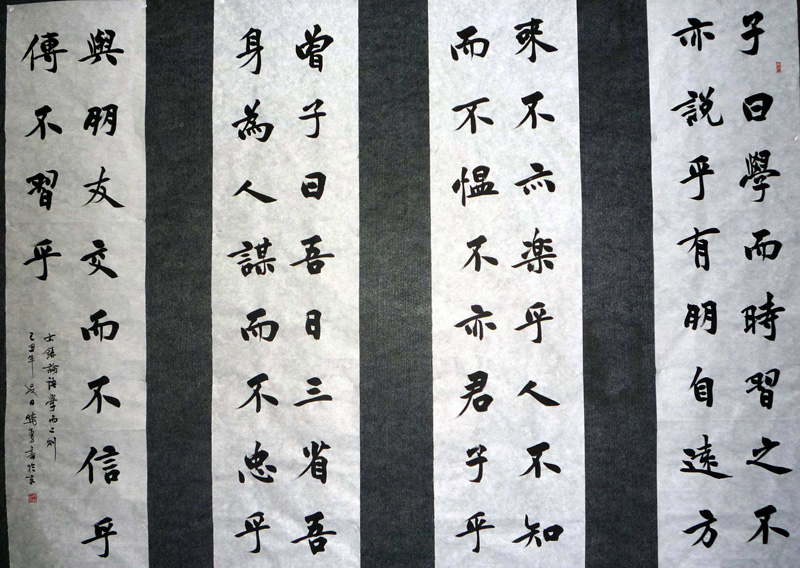 子曰學而時習之不
亦説乎有朋自遠方
來不亦楽乎人不知
而不愠不亦君子乎
曾子曰吾日三省吾
身為人謀而不忠乎
與朋友交而不信乎
傳不習乎
錄論語學而二則
己丑年夏日